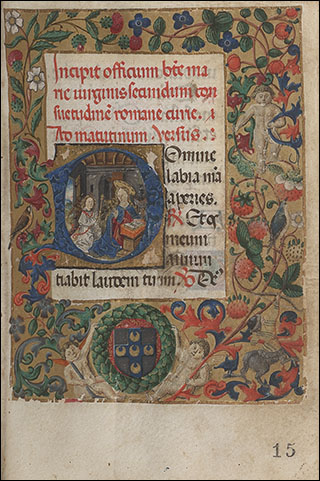 Incipit officium bte ma
rie uirginis secundum con
suetudinē romane curie.
Ad matutinum versus.
Domine
labia m̄a
aperies.
R Et os
meum
annun
tiabit laudem tuam. V De
15